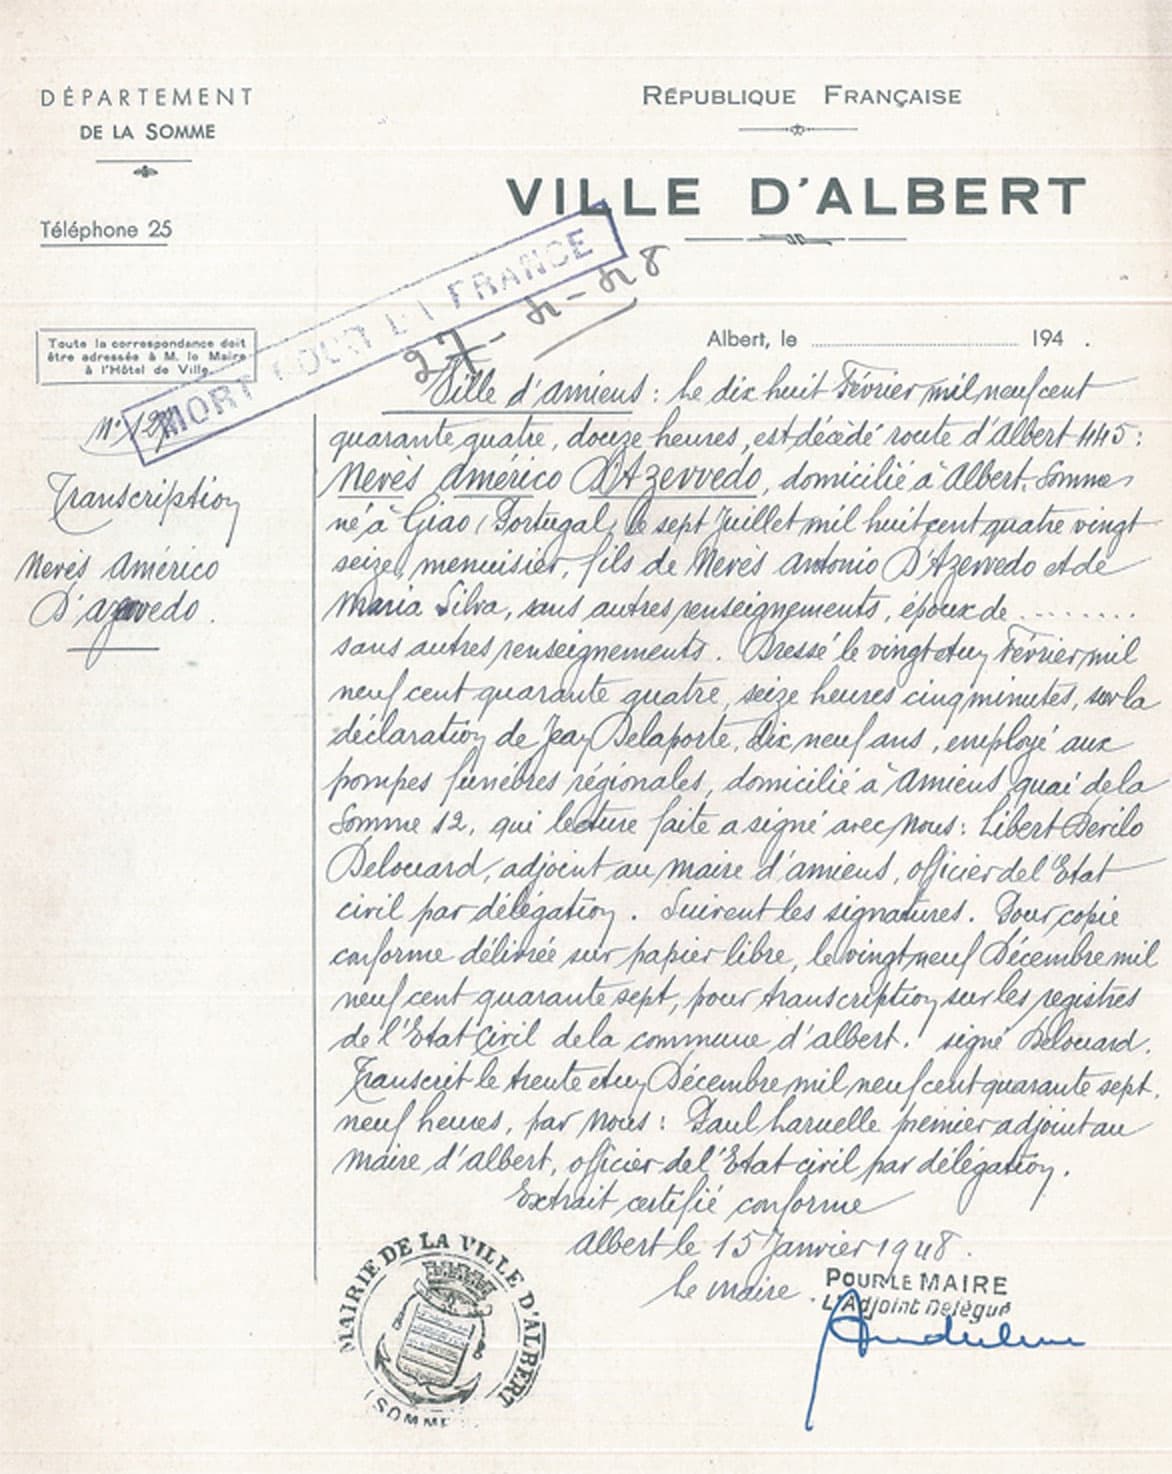 DÉPARTEMENT
DE LA SOMME
Téléphone 25
RÉPUBLIQUE FRANÇAISE
VILLE D'ALBERT
MORT POUR LA FRANCE
27-4-48
Toute la correspondance doit
être adressée à M. le Maire
à l'Hôtel de Ville
Albert, le ........ 194 .
N°
Transcription
Nevès Américo
D'azevedo.
Ville d'Amiens : Le dix huit Février mil neuf cent
quarante quatre, douze heures, est décédé route d'Albert 445 :
Nevès Américo D'Azevvedo, domicilié à Albert, Somme
né à Giao (Portugal) le sept Juillet mil huit cent quatre vingt
seize, menuisier, fils de Nevès Antonio D'Azevvedo et de
Maria Silva, sans autres renseignements, époux de ........
sans autres renseignements. Dressé le vingt et un Février mil
neuf cent quarante quatre, seize heures cinq minutes, sur la
déclaration de Jean Delaporte, dix neuf ans, employé aux
pompes funèbres régionales, domicilié à Amiens quai de la
Somme 12, qui lecture faite a signé avec Nous : Libert
Delouard, adjoint au maire d'Amiens, officier de l'Etat
civil par délégation. Suivent les signatures. Pour copie
conforme délivrée sur papier libre, le vingt neuf Décembre mil
neuf cent quarante sept, pour transcription sur les registres
de l'Etat Civil de la commune d'Albert. signé Delouard.
Transcrit le trente et un Décembre mil neuf cent quarante sept.
neuf heures, par Nous : Paul Laruelle premier adjoint au
Maire d'Albert, officier de l'Etat civil par délégation.
Extrait certifié conforme
Albert le 15 Janvier 1948.
Le Maire.
POUR LE MAIRE
L'Adjoint Délégué
MAIRIE DE LA VILLE D'ALBERT
(SOMME)